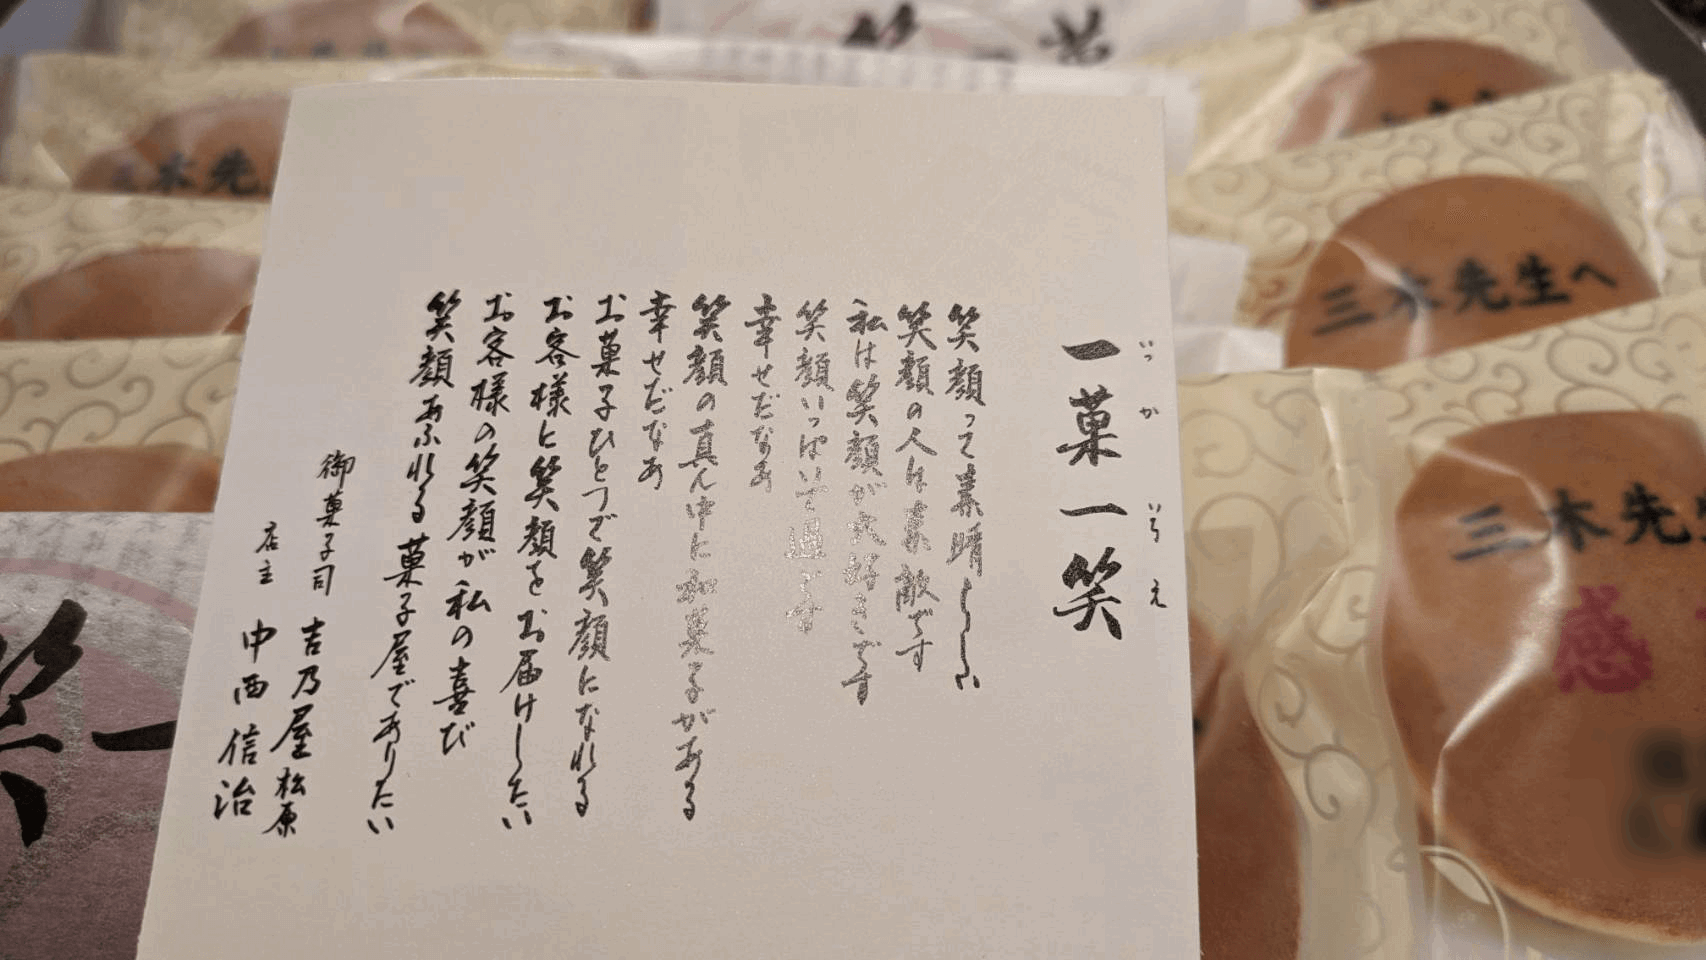 一菓一笑
いっかいちえ
笑顔って素晴しい
笑顔の人は素敵です
私は笑顔が大好きです
笑顔いっぱいで過ごす
幸せだなあ
笑顔の真ん中に和菓子がある
幸せだなあ
お菓子ひとつで笑顔になれる
お客様に笑顔をお届けしたい
お客様の笑顔が私の喜び
笑顔あふれる菓子屋でありたい
御菓子司 吉乃屋松原
店主 中西信治
三木先生へ
三木先
感
三木先
笑
笑一